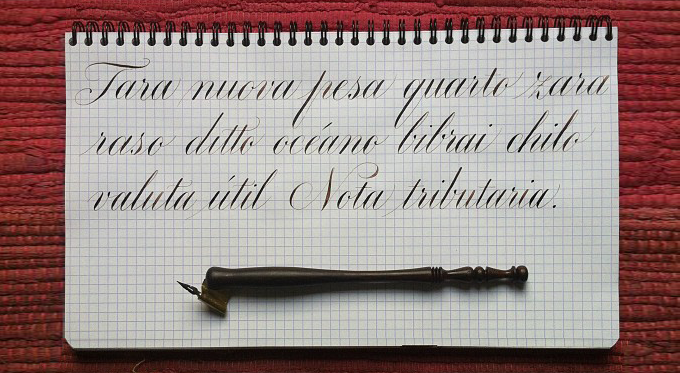 Tara nuova pesa quarto zara
raso ditto océano bibrai chilo
valuta útil Nota tributaria.